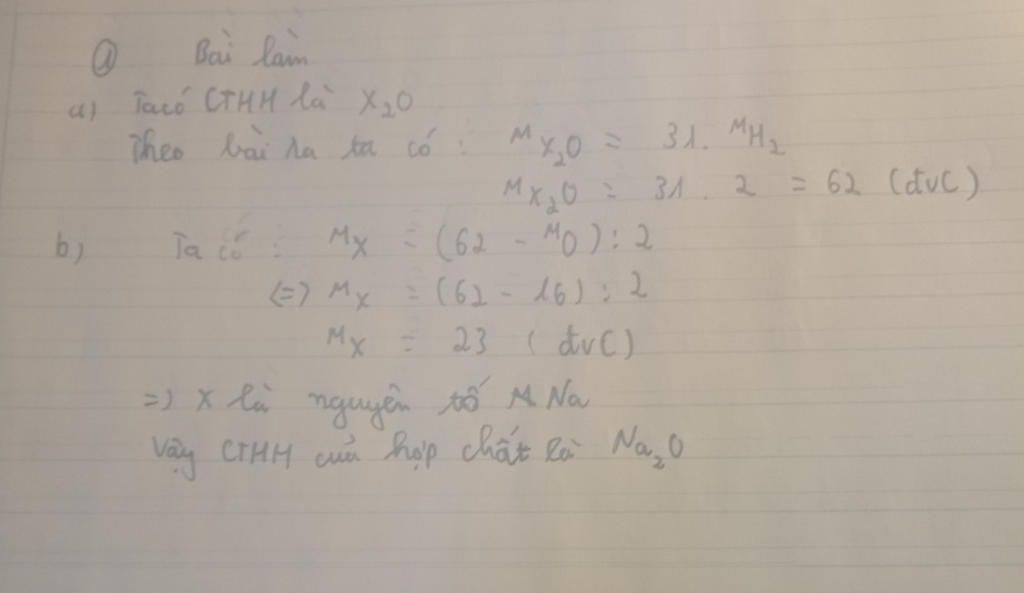 ① Bài làm
a) Ta có CTHH là X₂O
Theo bài ra ta có : Mx₂O = 31. MH₂
Mx₂O = 31. 2 = 62 (đvC)
b) Ta có : Mx = (62 - MO) : 2
(=) Mx = (62 - 16) : 2
Mx = 23 (đvC)
=) X là nguyên tố Na
Vậy CTHH của hợp chất là Na₂O